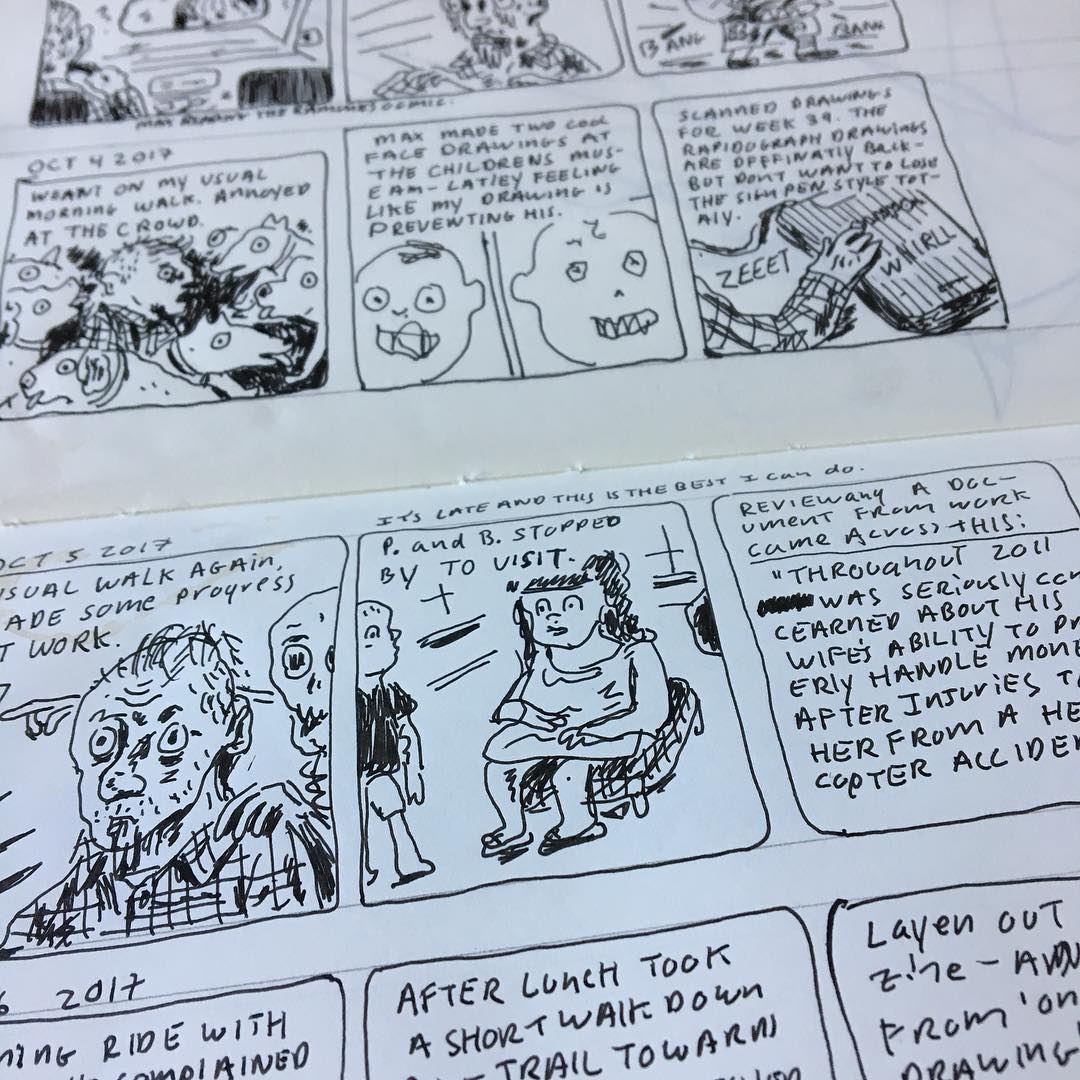 BANG
BAAM
MAX
THE RAMONES COMIC.
OCT 4 2017
WEANT ON MY USUAL
MORNING WALK. ANNOYED
AT THE CROWD.
MAX MADE TWO COOL
FACE DRAWINGS AT
THE CHILDRENS MUS-
EAM- LATLEY FEELING
LIKE MY DRAWING IS
PREVENTING HIS.
SCANNED DRAWINGS
FOR WEEK 39. THE
RAPIDOGRAPH DRAWINGS
ARE DEFFINATLY BACK-
BUT DON'T WANT TO LOSE
THE SIGN PEN STYLE TOT-
ALY.
ZEEET
WHIRLL
IT'S LATE AND THIS IS THE BEST I can do.
OCT 5 2017
USUAL WALK AGAIN,
MADE some progress
AT WORK.
P. and B. STOPPED
BY TO VISIT.
REVIEWANG A DOC-
UMENT FROM WORK
CAME ACROSS THIS:
"THROUGHOUT 2011
WAS SERIOUSLY CON
CEARNED ABOUT HIS
WIFE'S ABILITY TO PR
ERLY HANDLE MONE
AFTER INJURIES T
HER FROM A HE
COPTER ACCIDEN
6 2017
NING RIDE WITH
COMPLAINED
AFTER LUNCH TOOK
A SHORT WALK DOWN
TRAIL TOWARDS
LAYEN OUT
ZINE -
FROM 'ON
DRAWING